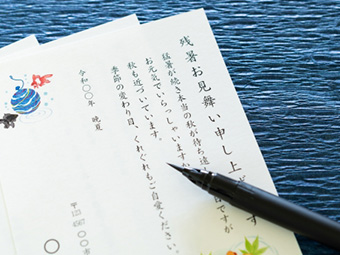 残暑お見舞い申し上げます
猛暑が続き本当の秋が待ち遠
ですが
お元気でいらっしゃいますか
秋も近づいています。
季節の変わり目、くれぐれもご自愛ください。
令和〇〇年　晩夏
〒
123
4567
〇〇
〇